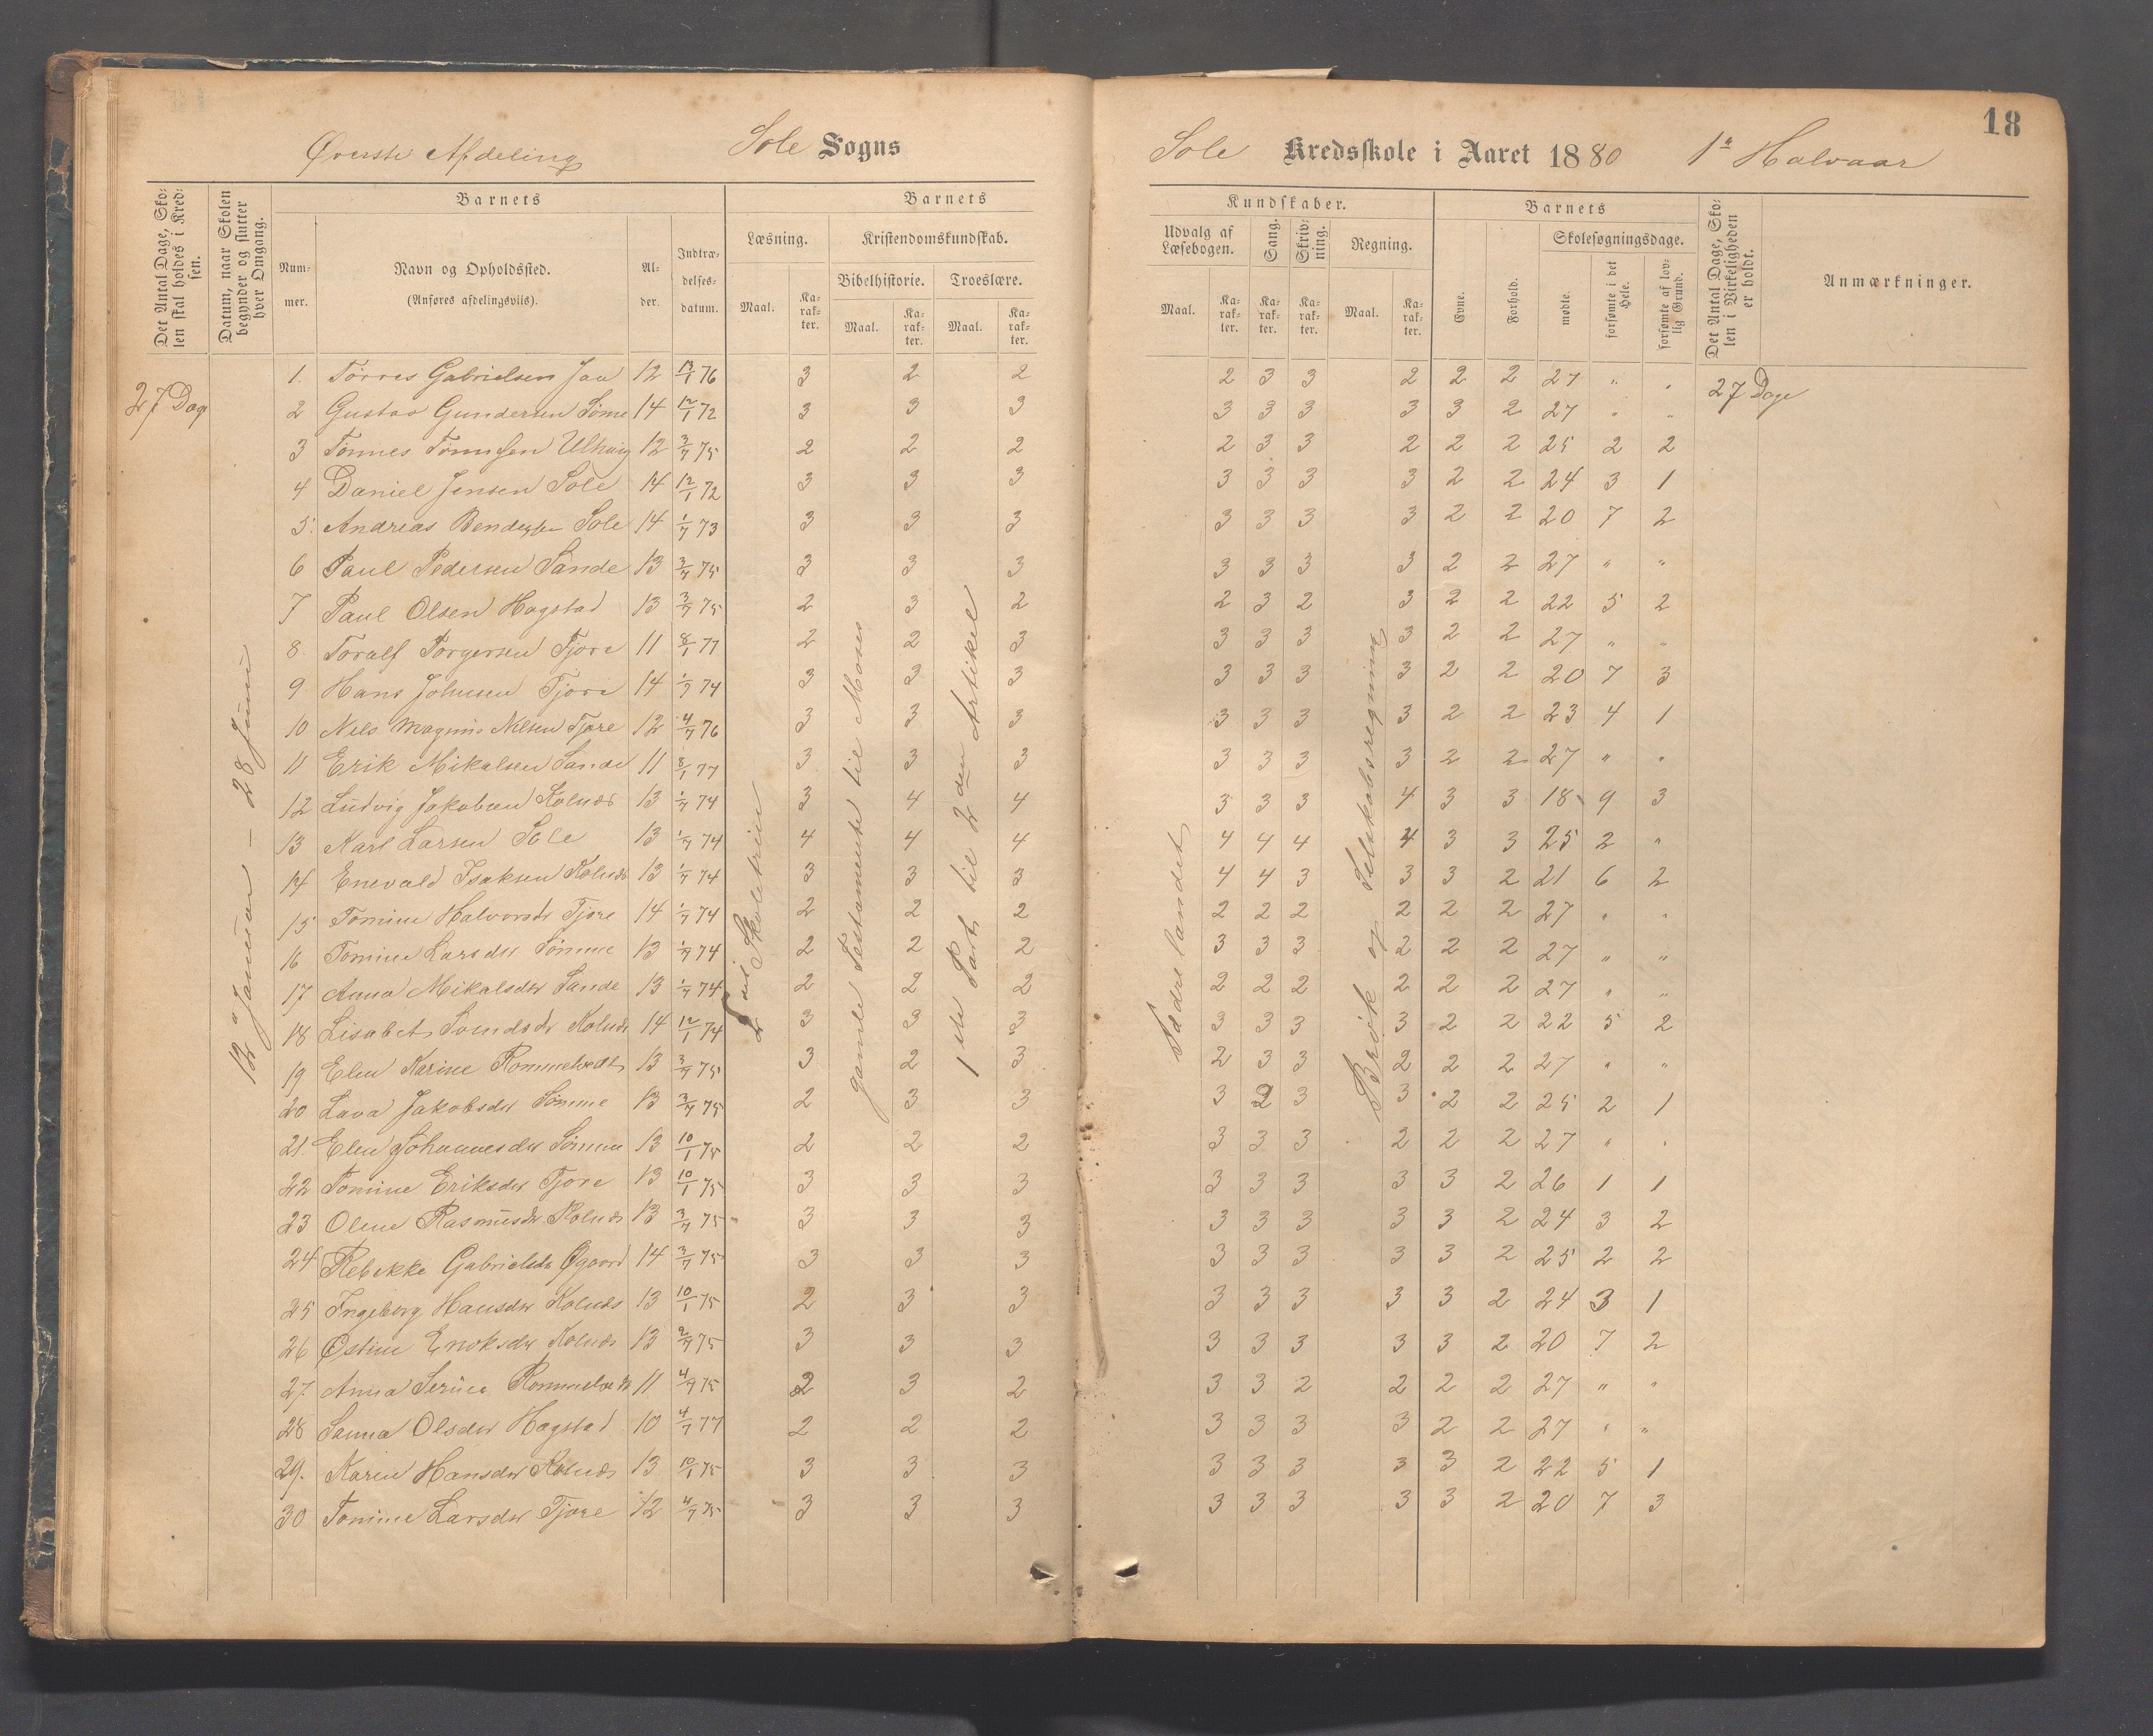 18
Øverste Afdeling Sole Sogns Sole Kredsskole i Aaret 1880 1e Halvaar
Det Antal Dage, Skolen skal holdes i Kredsen.
Datum, naar Skolen begynder og slutter hver Omgang.
Barnets
Nummer.
Navn og Opholdssted. (Anføres afdelingsviis).
Alder.
Indtrædelsesdatum.
Barnets Kundskaber.
Læsning. Maal. Karakter.
Kristendomskundskab.
Bibelhistorie. Maal. Karakter.
Troeslære. Maal. Karakter.
Udvalg af Læsebogen. Maal. Karakter.
Sang. Karakter.
Skrivning. Karakter.
Regning. Maal. Karakter.
Barnets
Evne. Forhold.
Skolesøgningsdage.
mødte. forsømte i det Hele. forsømte af lovlig Grund.
Det Antal Dage, Skolen i Virkeligheden er holdt.
Anmærkninger.
27 Dage
12 Januar – 28 Juni
2det Skoletrin
gamle Testamente til Moses
1ste Part til 2den Artikel
Fædrelandet
Brøk og Selskabsregning
27 Dage
1. Tørres Gabrielsen Jaa 12 13/1 76 3 2 2 2 3 3 2 2 2 27 " "
2 Gustav Gundersen Sømme 14 12/1 72 3 3 3 3 3 3 3 3 2 27 " "
3 Tønnes 12 3/7 75 2 2 2 2 3 3 2 2 2 25 2 2
4 Daniel Jensen Sole 14 12/1 72 3 3 3 3 3 3 3 2 2 24 3 1
5. Andreas Sole 14 1/7 73 3 3 3 3 3 3 3 2 2 20 7 2
6 Paul Pedersen Sande 13 3/7 75 3 3 3 3 3 3 3 2 2 27 " "
7 Paul Olsen Hogstad 13 3/7 75 2 3 2 2 3 2 3 2 2 22 5 2
8. Toralf Torgersen Tjore 11 8/1 77 2 2 3 3 3 3 3 2 2 27 " "
9 Hans Johnsen Tjore 14 1/7 74 3 3 3 3 3 3 3 2 2 20 7 3
10 Nels Magnus Nilsen Tjore 12 4/7 76 3 3 3 3 3 3 3 2 2 23 4 1
11 Erik Mikalsen Sande 11 8/1 77 3 3 3 3 3 3 3 2 2 27 " "
12 Ludvig Jakobsen Kolnæs 13 1/7 74 3 4 4 3 3 3 4 3 3 18 9 3
13 Karl Larsen Sole 13 1/7 74 4 4 4 4 4 4 4 3 3 25 2 "
14 Enevald Isaksen Kolnæs 13 1/7 74 3 3 3 4 4 3 3 3 2 21 6 2
15 Tomine Halvorsdr Tjore 14 1/7 74 2 2 2 2 2 2 2 2 2 27 " "
16 Tomine Larsdtr Sømme 13 1/7 74 2 2 2 3 3 3 2 2 2 27 " "
17 Anna Mikalsdtr Sande 13 1/7 74 2 2 2 2 2 2 2 2 2 27 " "
18 Lisabet Svendsdr Kolnæs 14 12/1 74 3 3 3 3 3 3 3 2 2 22 5 2
19 Elen Karine Rommetvedt 13 3/7 75 3 2 3 2 3 3 2 2 2 27 " "
20 Lava Jakobsdtr Sømme 13 3/7 75 2 3 3 3 2 3 3 2 2 25 2 1
21. Elen Johannesdtr Sømme 13 10/1 75 2 2 2 3 3 3 2 2 2 27 " "
22 Tomine Eriksdtr Tjore 13 10/1 75 3 3 3 3 3 3 3 3 2 26 1 1
23 Oline Rasmusdr Kolnæs 13 3/7 75 3 3 3 3 3 3 3 3 2 24 3 2
24 Rebekke Gabrielsdr Øgaard 14 3/7 75 3 3 3 3 3 3 3 3 2 25 2 2
25 Ingeborg Hansdtr Kolnæs 13 10/1 75 2 3 3 3 3 3 3 3 2 24 3 1
26 Østine Enoksdtr Kolnæs 13 2/7 75 3 3 3 3 3 3 3 3 2 20 7 2
27. Anna Serine Rommetvedt 11 4/7 75 2 3 2 3 3 2 2 2 2 27 " "
28 Sanna Olsdtr Hogstad 10 4/7 77 2 2 2 3 3 3 3 2 2 27 " "
29. Karen Hansdtr Kolnæs 13 10/1 75 3 3 3 3 3 3 3 3 2 22 5 1
30 Tomine Larsdtr Tjore 12 4/7 75 3 3 3 3 3 3 3 3 2 20 7 3